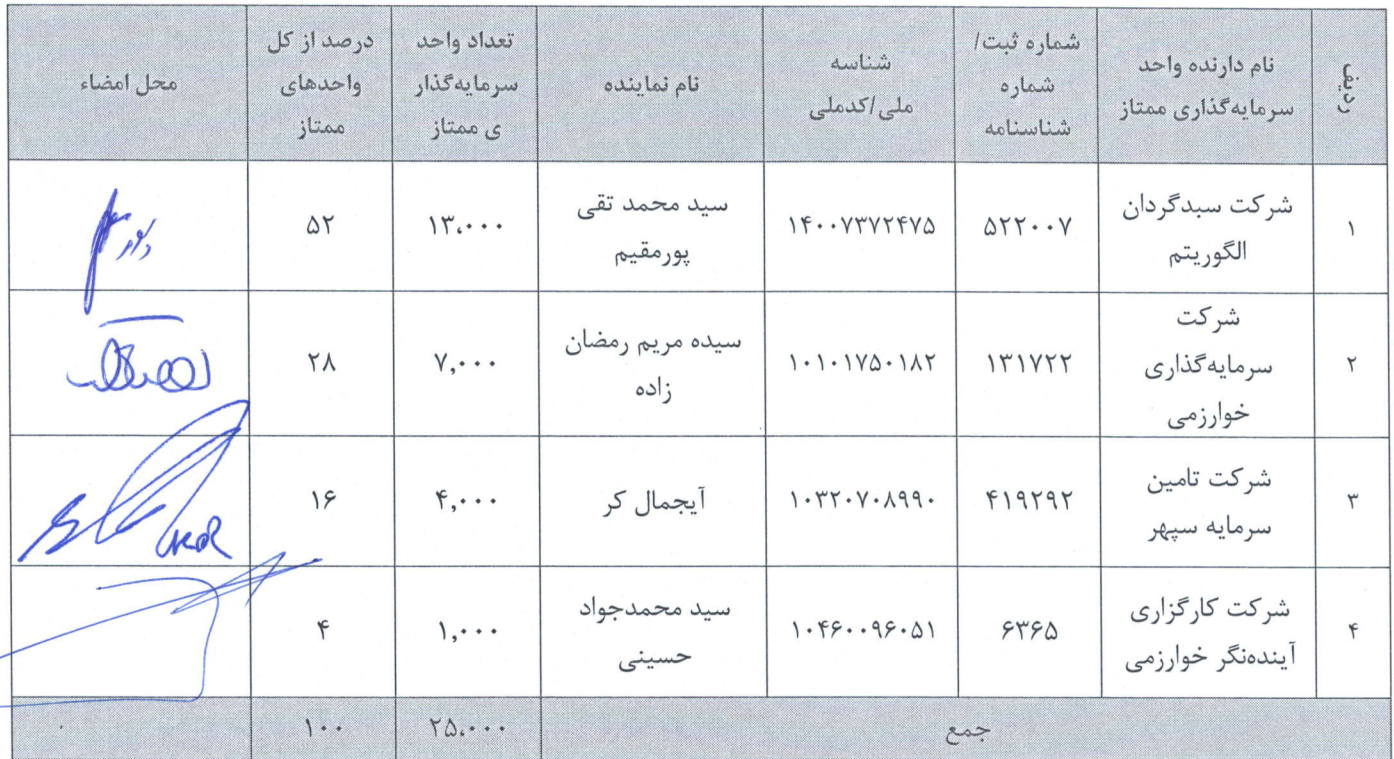 ردیف
نام دارنده واحد
سرمایه‌گذاری ممتاز
شماره ثبت/
شماره
شناسنامه
شناسه
ملی/کدملی
نام نماینده
تعداد واحد
سرمایه‌گذار
ی ممتاز
درصد از کل
واحدهای
ممتاز
محل امضاء
۱
شرکت سبدگردان
الگوریتم
۵۲۲۰۰۷
۱۴۰۰۷۳۷۲۴۷۵
سید محمد تقی
پورمقیم
۱۳،۰۰۰
۵۲
۲
شرکت
سرمایه‌گذاری
خوارزمی
۱۳۱۷۲۲
۱۰۱۰۱۷۵۰۱۸۲
سیده مریم رمضان
زاده
۷,۰۰۰
۲۸
۳
شرکت تامین
سرمایه سپهر
۴۱۹۲۹۲
۱۰۳۲۰۷۰۸۹۹۰
آیجمال کر
۴,۰۰۰
۱۶
۴
شرکت کارگزاری
آینده‌نگر خوارزمی
۶۳۶۵
۱۰۴۶۰۰۹۶۰۵۱
سید محمدجواد
حسینی
۱,۰۰۰
۴
جمع
۲۵،۰۰۰
۱۰۰